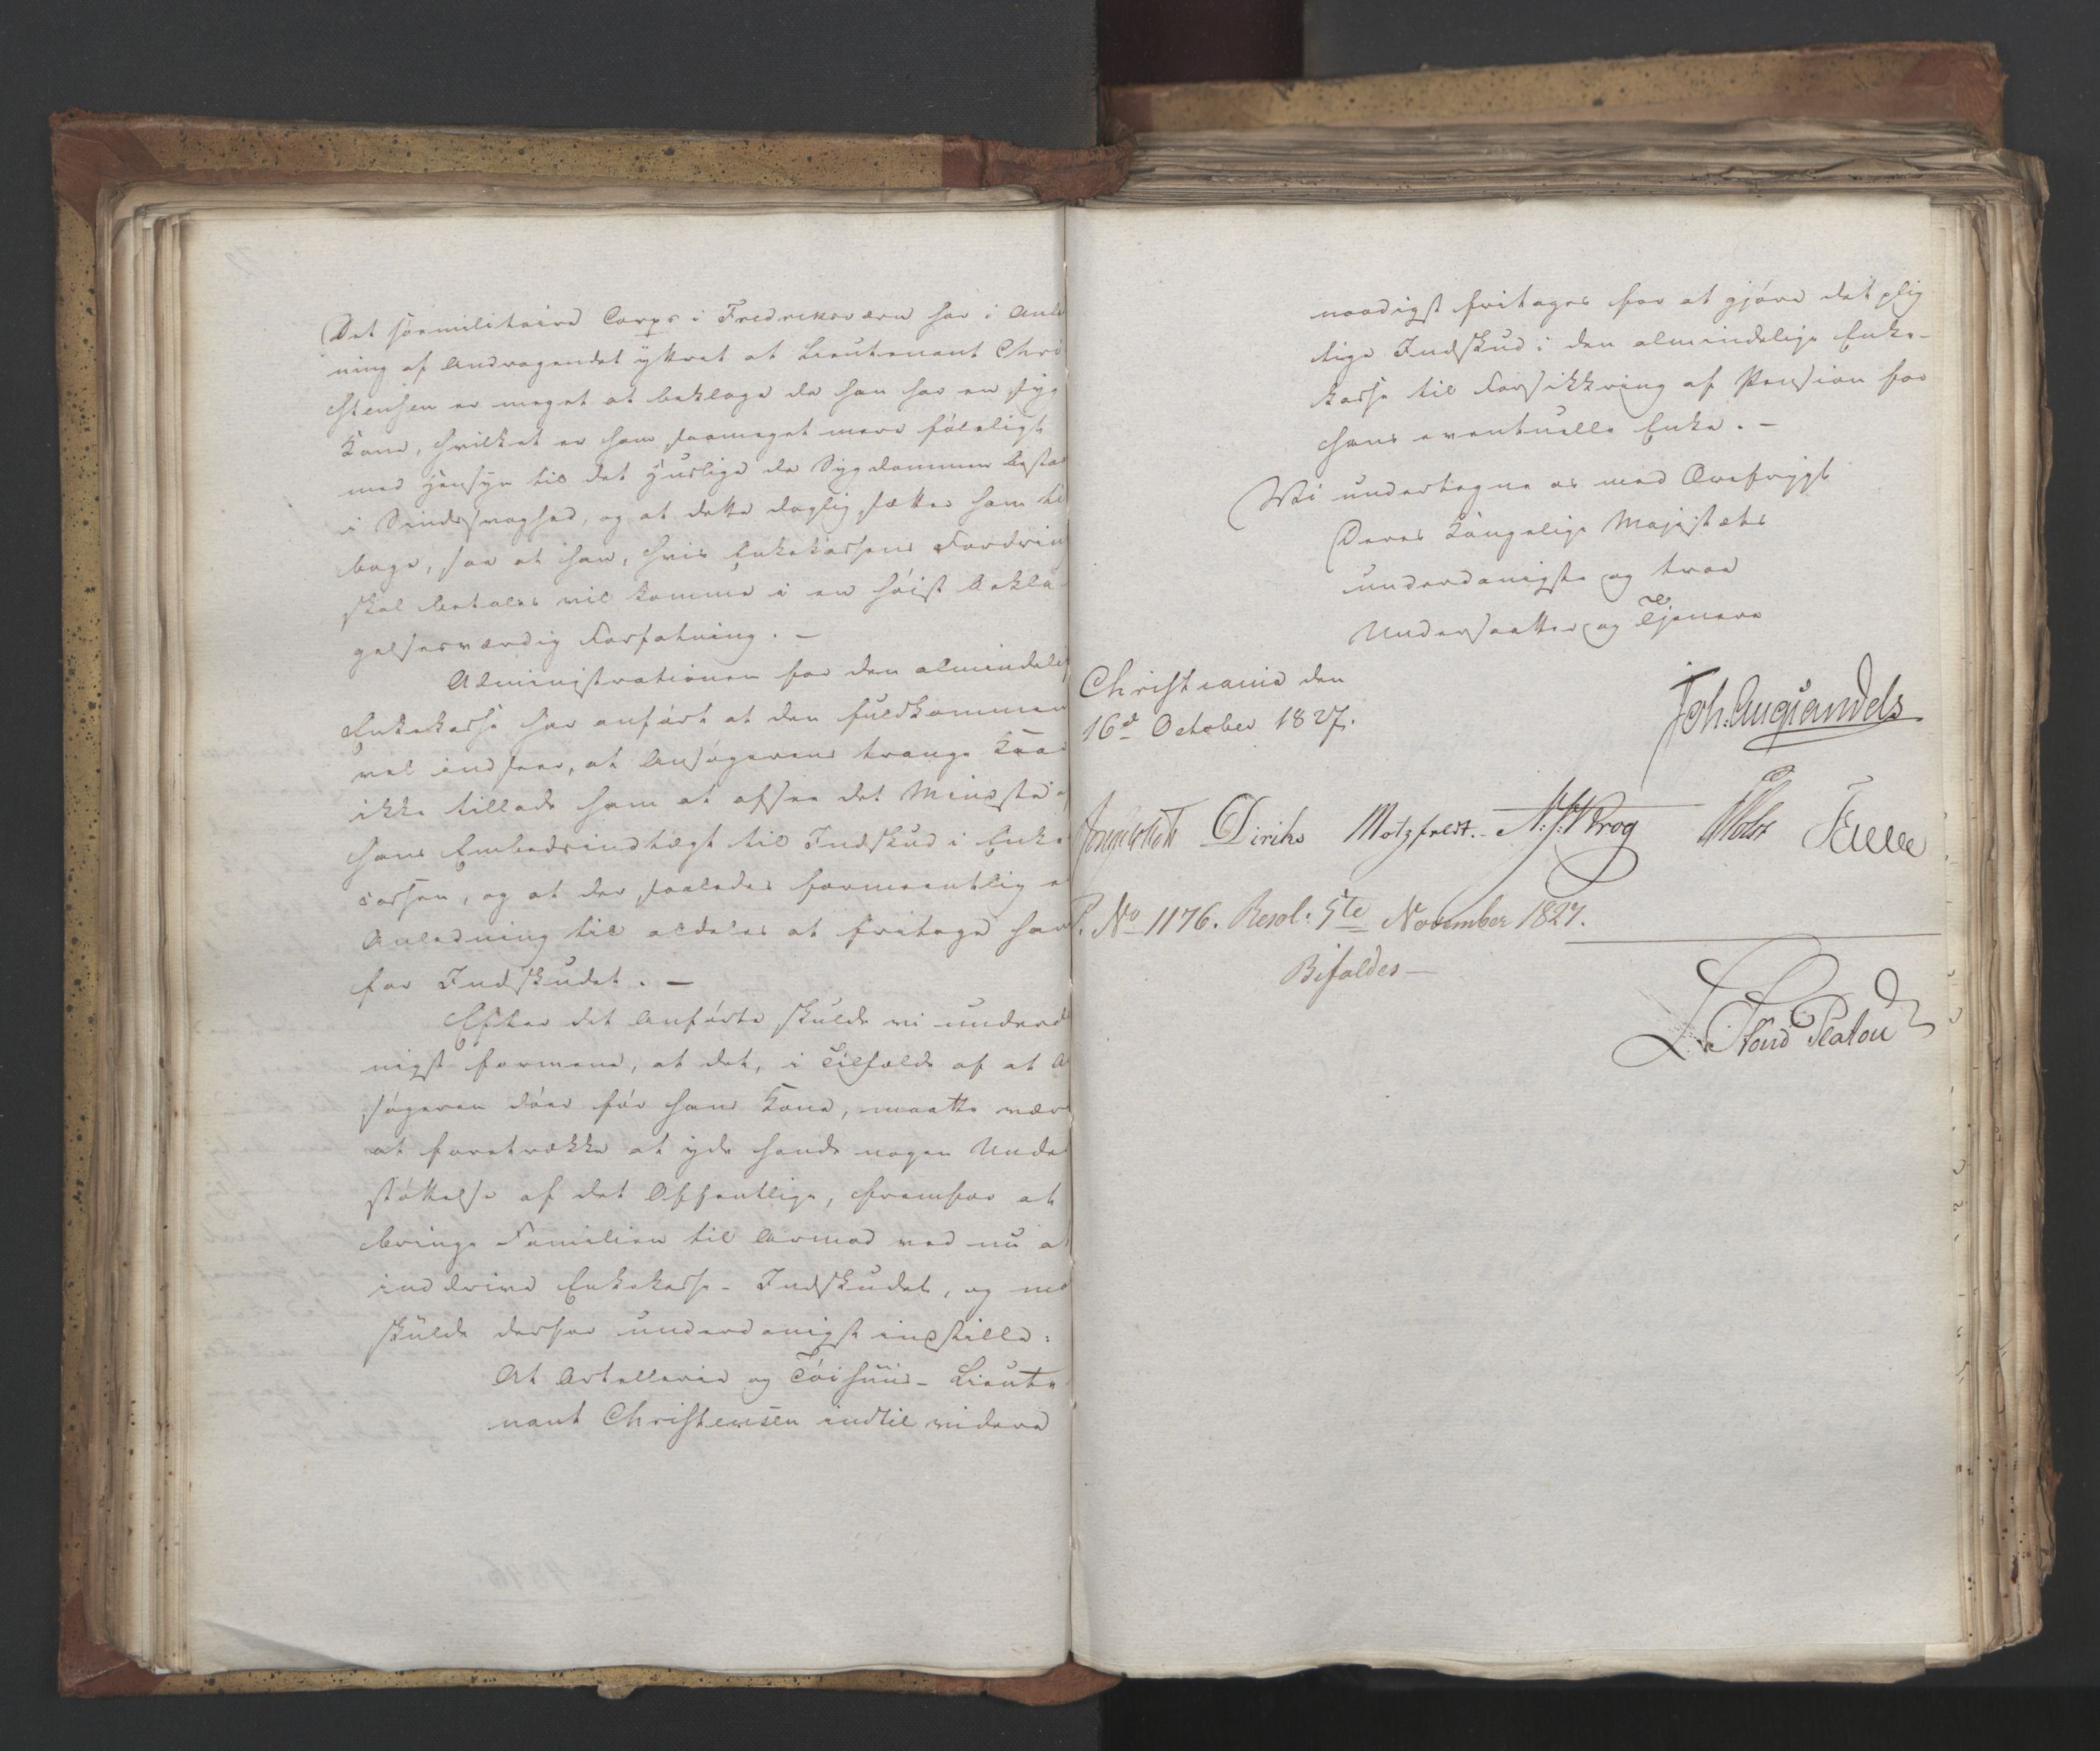 Det søemilitaire Corps i Fredriksværn har i Anle
ning af Andragendet yttret at Lieutenant Chri
stensen er meget at beklage da han har en syg
Kone, hvilket er ham saameget mere føleligt
med Hensyn til det Huslige da Sygdommen bestaa
i Sindssvaghed, og at dette daglig sætter ham til
bage, saa at han, hvis Enkekassens Fordrin
skal betales vil komme i en høist bekla
gelsesværdig Forfatning. –
Administrationen for den almindeli
Enkekasse har anført at den fuldkommen
vel indseer, at Ansøgerens trange Kaar
ikke tillade ham at afsee det Mindste af
hans Embedsindtægt til Indskud i Enke
cassen, og at der saaledes formeentlig e
Anledning til aldeles at fritage ham
for Indskudet. –
Efter det Anførte skulde vi underd
nigst formene, at det, i Tilfælde af at A
søgeren döer før hans Kone, maatte vær
at foretrække at yde hende nogen Unde
støttelse af det Offentlige, fremfor at
bringe Familien til Armod ved nu at
inddrive Enkekasse-Indskudet, og
skulde derfor underdanigst indstille:
At Artellerie og Tøihuus-Lieute
nant Christensen indtil videre
naadigst fritages for at gjøre det plig
tige Indskud i den almindelige Enke-
kasse til Forsikkring af Pension for
hans eventuelle Enke. –
Vi undertegne os med Ærefrygt
Deres Kongelige Majestæts
underdanigste og troe
Undersaatter og Tjenere
Christiania den
16d October 1827.
Joh. Aug Sandels
Diriks Motzfeldt. Krog
P. No 1176. Resol: 5te November 1827.
Bifaldes –
L. Stoud Platou